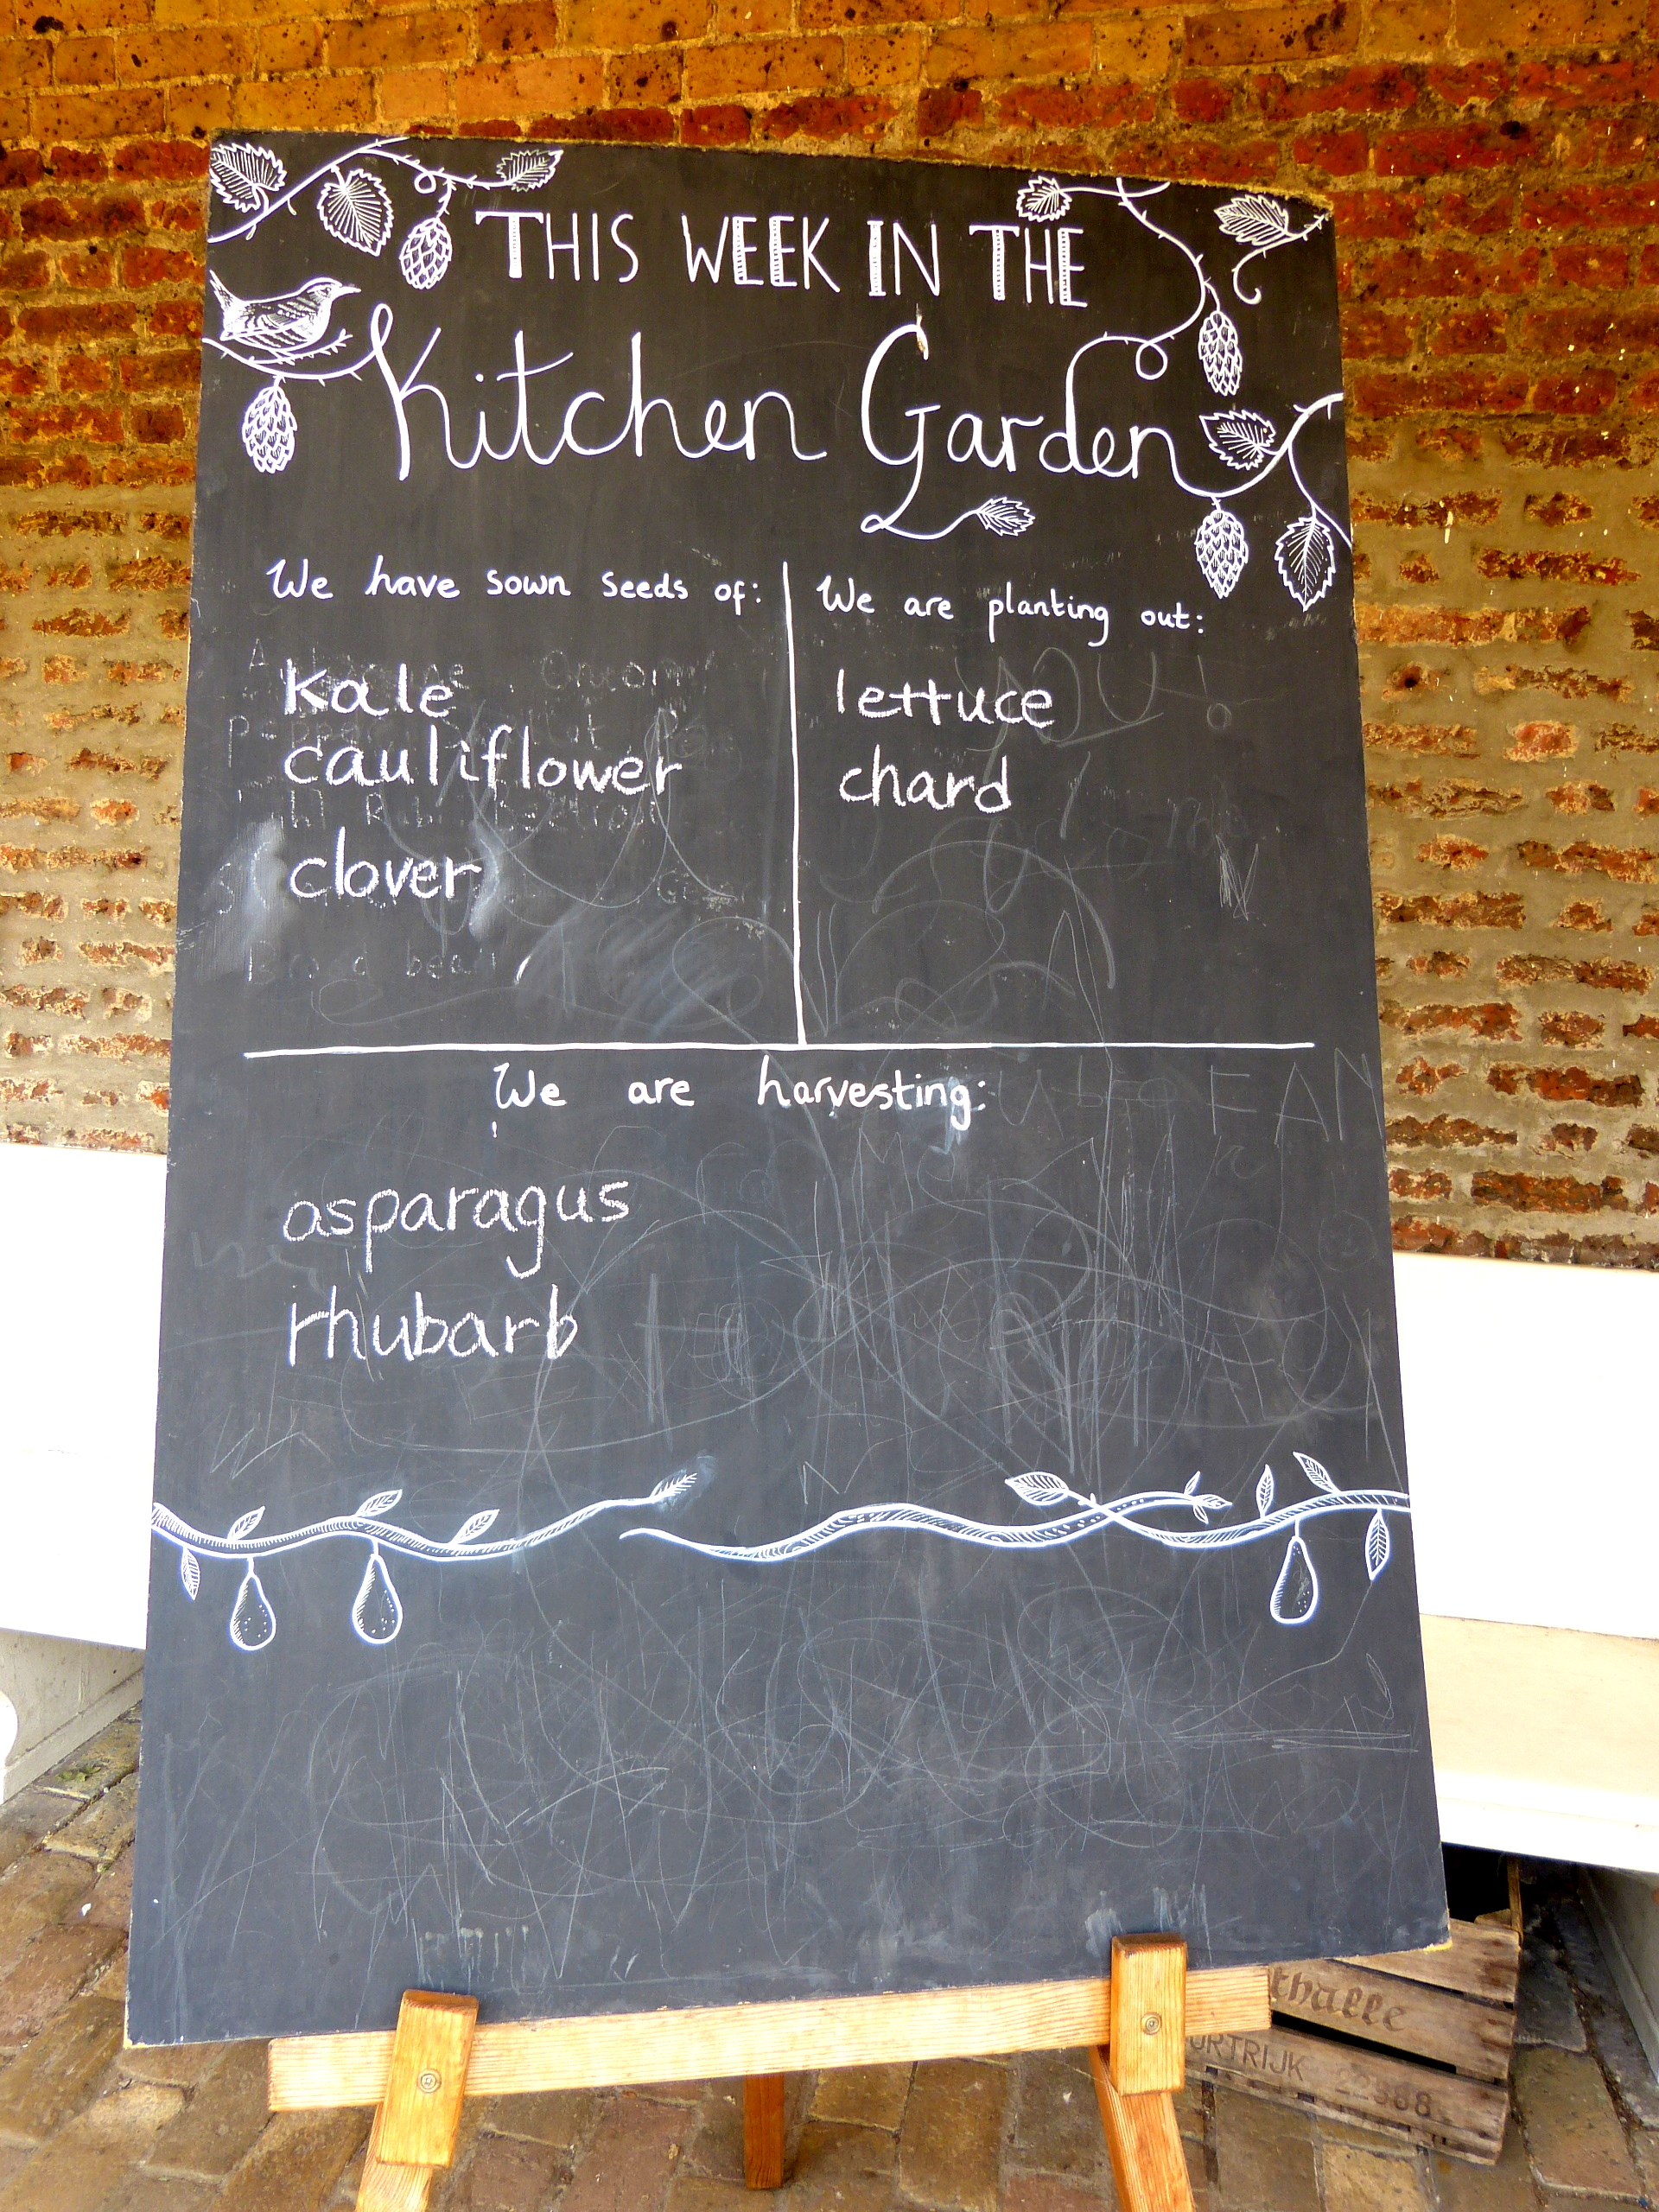 THIS WEEK IN THE
Kitchen Garden
We have sown seeds of:
Kale
cauliflower
clover
We are planting out:
lettuce
chard
We are harvesting:
asparagus
rhubarb
thalle
URTRIJK 22568